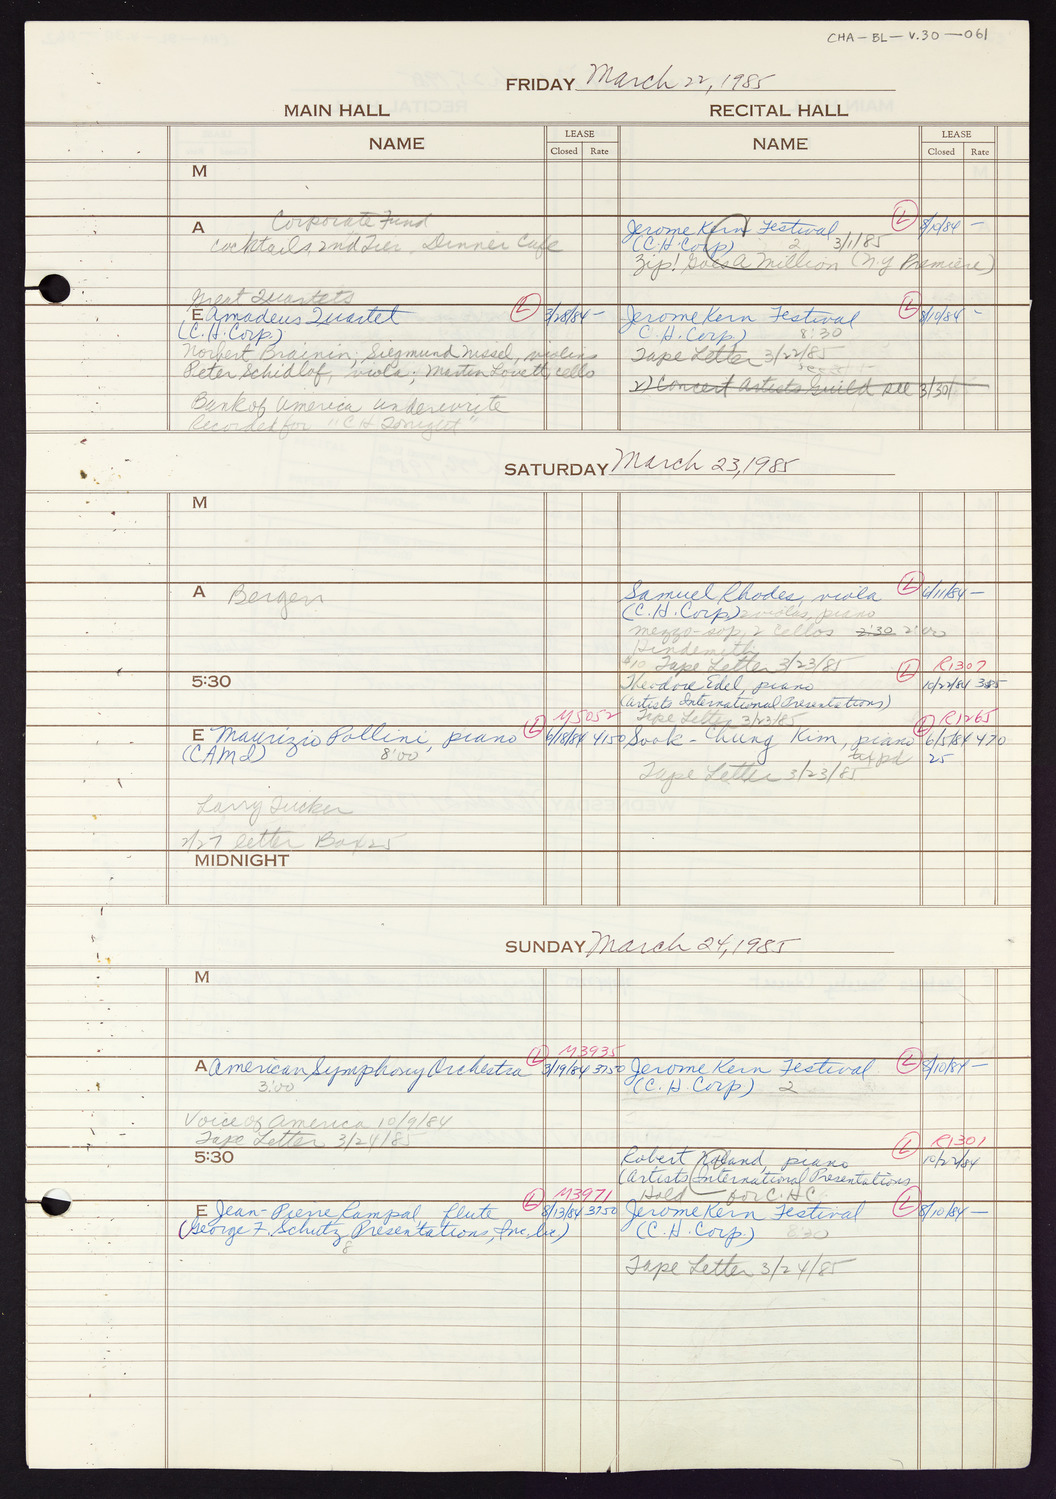 CHA-BL-V.30-061
FRIDAY March 22, 1985
MAIN HALL
RECITAL HALL
NAME
LEASE
Closed Rate
NAME
LEASE
Closed Rate
M
A
Corporate Fund
cocktails 2nd Tier. Dinner Cafe
L
Jerome Kern Festival 8/10/84 -
(C.H. Corp) 2 3/1/85
Zip! Goes A Million (N.Y Premiere)
Great Quartets
E Amadeus Quartet L 3/28/84 -
(C.H. Corp.)
Norbert Brainin, Siegmund Nissel, violins
Peter Schidlof, viola; Martin Lovett, cello
Bank of America underwrite
Recorded for "C H Tonight"
L
Jerome Kern Festival 8/10/84 -
(C.H. Corp) 8:30
Tape Letter 3/22/85
2) Concert Artists Guild see 3/30/
SATURDAY March 23, 1985
M
A Bergen
L
Samuel Rhodes, viola 6/11/84 -
(C.H. Corp) 2 violas, piano
mezzo-sop, 2 cellos 2:30 2:00
Hindemith
$10 Tape Letter 3/23/85
5:30
L R1307
Theodore Edel, piano 10/22/84 385
(Artists International Presentations)
Tape Letter 3/23/85
L M5052
E Maurizio Pollini, piano 6/18/84 4150
(CAMI) 8:00
Larry Tucker
2/27 letter Box 25
L R1265
Sook-Chung Kim, piano 6/5/84 470
tax pd 25
Tape Letter 3/23/85
MIDNIGHT
SUNDAY March 24, 1985
M
L M3935
A American Symphony Orchestra 3/19/84 3750
3:00
Voice of America 10/9/84
Tape Letter 3/24/85
L
Jerome Kern Festival 8/10/84 -
(C.H. Corp) 2
5:30
L R1301
Robert Roland, piano 10/22/84
(Artists International Presentations
Hold for C.H.C.
L M3971
E Jean-Pierre Rampal, flute 8/13/84 3750
(George F. Schutz Presentations, Inc.)
8
L
Jerome Kern Festival 8/10/84 -
(C.H. Corp.) 830
Tape Letter 3/24/85